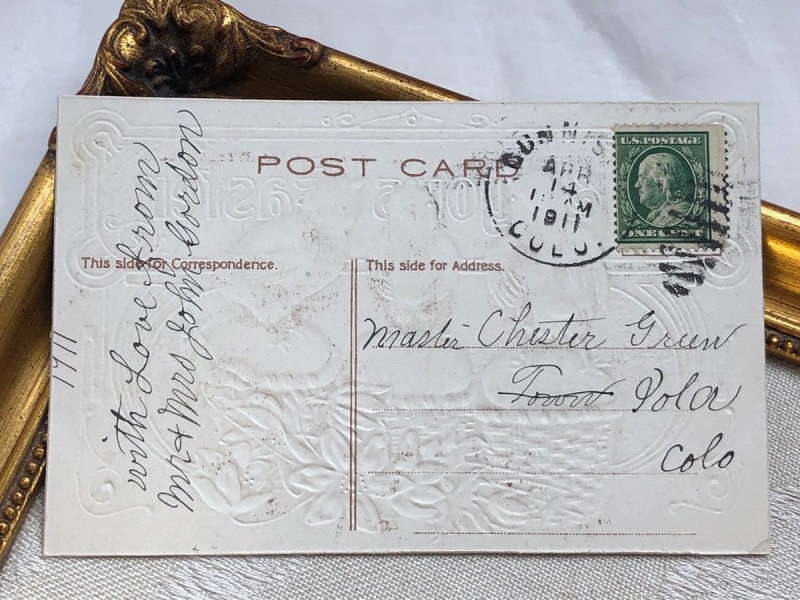 POST CARD
This side for Correspondence.
This side for Address.
with Love from
Mr & Mrs John Gordon
1911
U.S. POSTAGE
ONE CENT
APR
14
1911
COLO.
Master Chester Green
Town Iola
Colo